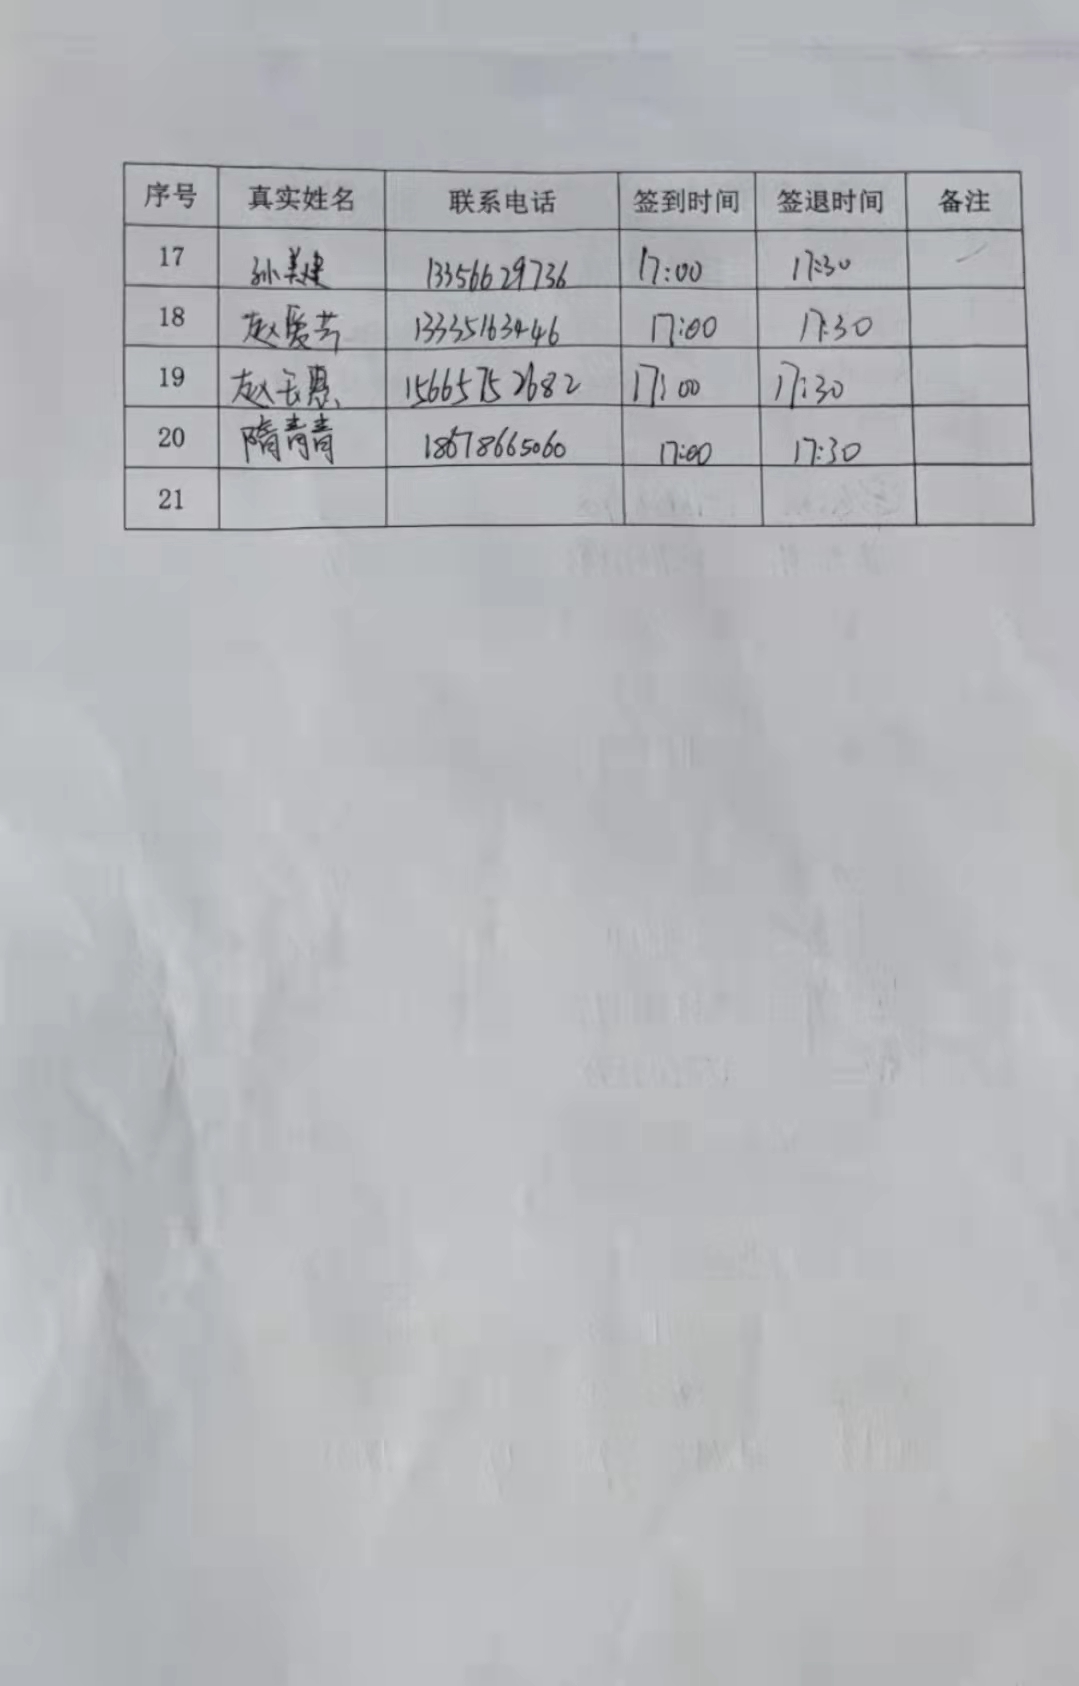 序号 真实姓名 联系电话 签到时间 签退时间 备注
17 孙美建 13356629736 17:00 17:30
18 赵爱芳 13335163446 17:00 17:30
19 赵云惠 15665752682 17:00 17:30
20 隋青青 18678665060 17:00 17:30
21